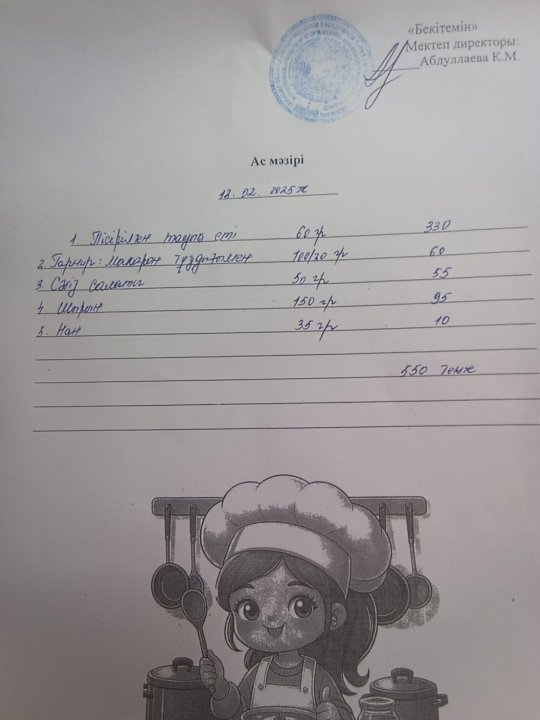 «Бекітемін»
Мектеп директоры:
Абдуллаева К.М.
Ас мәзірі
12. 02. 2025ж
1. Пісірілген тауық еті 60 гр 330
2. Гарнир: Макарон тұздықпен 100/20 гр 60
3. Сәбіз салаты 50 гр 55
4. Шырын 150 гр 95
5. Нан 35 гр 10
550 теңге